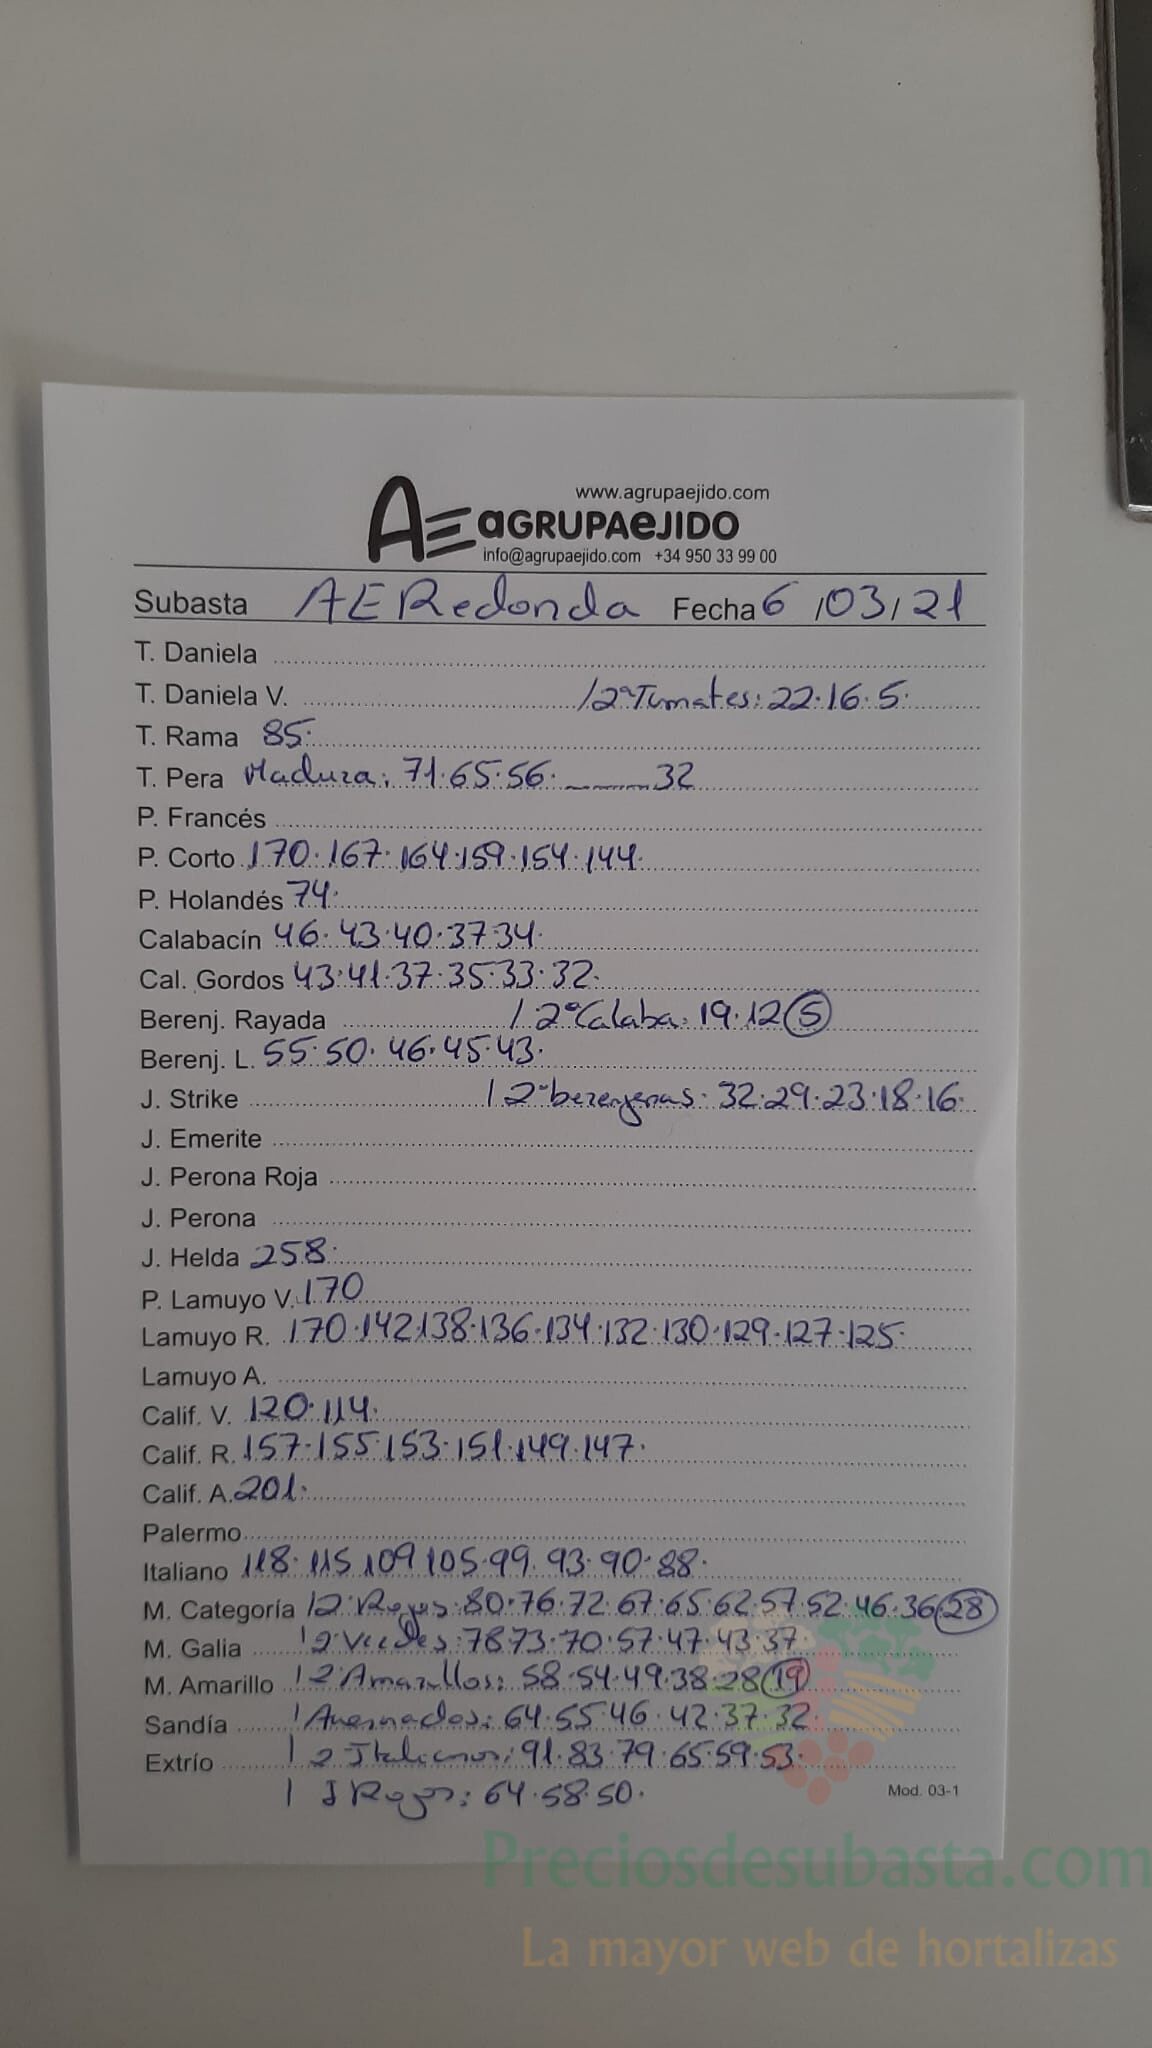 www.agrupaejido.com
AE aGRUPAeJIDO
info@agrupaejido.com +34 950 33 99 00
Subasta AE Redonda Fecha 6 /03/21
T. Daniela
T. Daniela V. /2ª Tomates: 22.16.5.
T. Rama 85.
T. Pera Madura: 71.65.56. 32
P. Francés
P. Corto 170.167.164.159.154.144.
P. Holandés 74.
Calabacín 46.43.40.37.34.
Cal. Gordos 43.41.37.35.33.32.
Berenj. Rayada /2ª Calaba: 19.12 5
Berenj. L. 55.50.46.45.43.
J. Strike /2ª berenjenas: 32.29.23.18.16.
J. Emerite
J. Perona Roja
J. Perona
J. Helda 258.
P. Lamuyo V. 170
Lamuyo R. 170.142.138.136.134.132.130.129.127.125.
Lamuyo A.
Calif. V. 120.114.
Calif. R. 157.155.153.151.149.147.
Calif. A. 201.
Palermo
Italiano 118.115.109.105.99.93.90.88.
M. Categoría /2ª Rojos: 80.76.72.67.65.62.57.52.46.36 28
M. Galia /2 Verdes: 78.73.70.57.47.43.37
M. Amarillo /2 Amarillos: 58.54.49.38.28 19
Sandía / Asurados: 64.55.46.42.37.32.
Extrío / 2 Italianos: 91.83.79.65.59.53.
/ I Rojos: 64.58.50.
Mod. 03-1
Preciosdesubasta.com
La mayor web de hortalizas